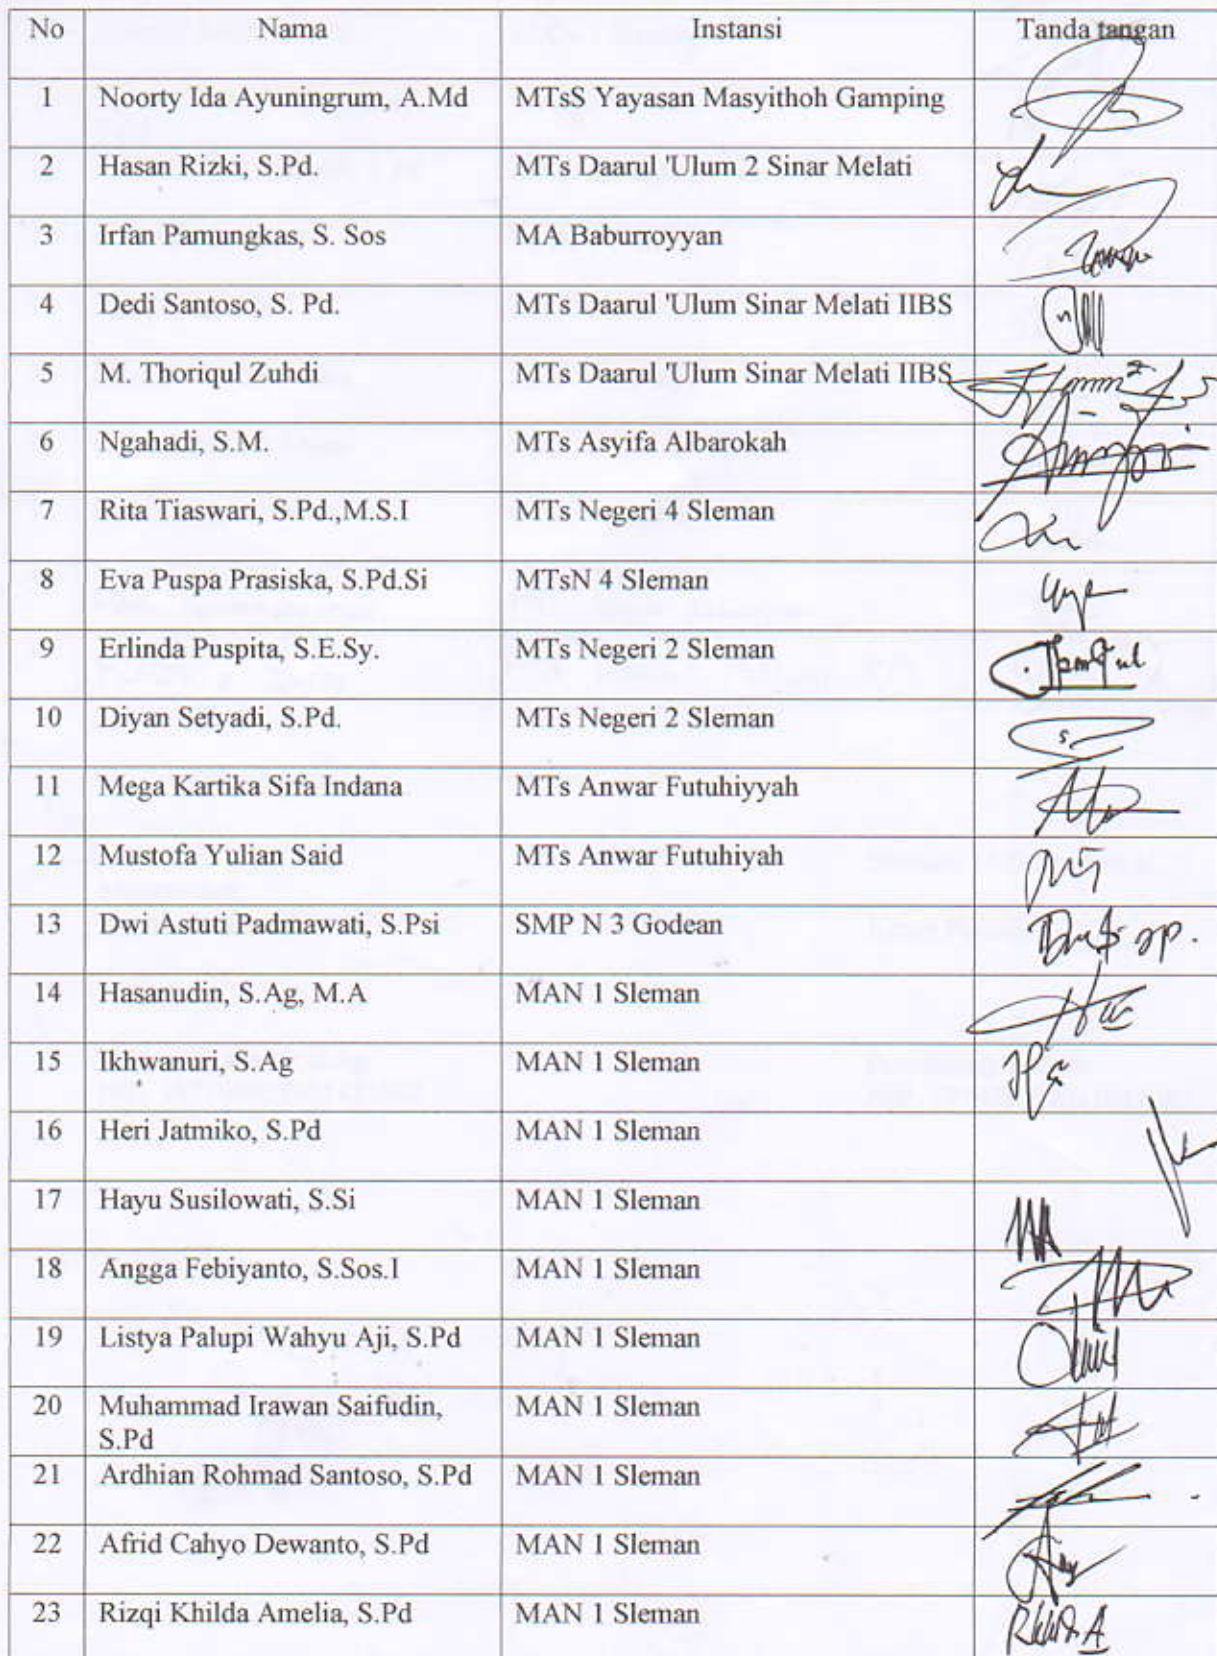 No Nama Instansi Tanda tangan
1 Noorty Ida Ayuningrum, A.Md MTsS Yayasan Masyithoh Gamping
2 Hasan Rizki, S.Pd. MTs Daarul 'Ulum 2 Sinar Melati
3 Irfan Pamungkas, S. Sos MA Baburroyyan
4 Dedi Santoso, S. Pd. MTs Daarul 'Ulum Sinar Melati IIBS
5 M. Thoriqul Zuhdi MTs Daarul 'Ulum Sinar Melati IIBS
6 Ngahadi, S.M. MTs Asyifa Albarokah
7 Rita Tiaswari, S.Pd.,M.S.I MTs Negeri 4 Sleman
8 Eva Puspa Prasiska, S.Pd.Si MTsN 4 Sleman
9 Erlinda Puspita, S.E.Sy. MTs Negeri 2 Sleman
10 Diyan Setyadi, S.Pd. MTs Negeri 2 Sleman
11 Mega Kartika Sifa Indana MTs Anwar Futuhiyyah
12 Mustofa Yulian Said MTs Anwar Futuhiyah
13 Dwi Astuti Padmawati, S.Psi SMP N 3 Godean
14 Hasanudin, S.Ag, M.A MAN 1 Sleman
15 Ikhwanuri, S.Ag MAN 1 Sleman
16 Heri Jatmiko, S.Pd MAN 1 Sleman
17 Hayu Susilowati, S.Si MAN 1 Sleman
18 Angga Febiyanto, S.Sos.I MAN 1 Sleman
19 Listya Palupi Wahyu Aji, S.Pd MAN 1 Sleman
20 Muhammad Irawan Saifudin, MAN 1 Sleman
S.Pd
21 Ardhian Rohmad Santoso, S.Pd MAN 1 Sleman
22 Afrid Cahyo Dewanto, S.Pd MAN 1 Sleman
23 Rizqi Khilda Amelia, S.Pd MAN 1 Sleman